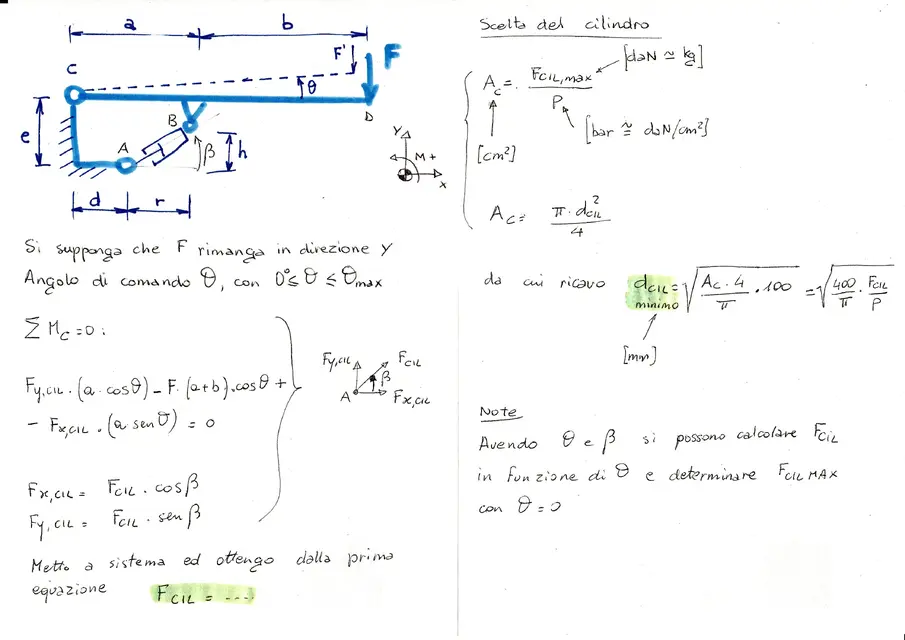 a
b
F'
F
C
θ
D
B
e
A
β
h
d
r
Y
M+
x
Si supponga che F rimanga in direzione Y
Angolo di comando θ, con 0°≤ θ ≤ θmax
∑ Mc = 0 :
Fy,CIL · (a · cosθ) - F · (a+b) · cosθ +
- Fx,CIL · (a senθ) = 0
Fx,CIL = FCIL · cosβ
Fy,CIL = FCIL · senβ
Fy,CIL
FCIL
β
A
Fx,CIL
Metto a sistema ed ottengo dalla prima
equazione FCIL = ....
Scelta del cilindro
Ac = FCIL,max / P
[daN ≃ kg]
[bar ≅ daN/cm²]
[cm²]
Ac = π · dCIL² / 4
da cui ricavo dCIL minimo = √(Ac · 4 / π · 100) = √(400 / π · FCIL / P)
[mm]
Note
Avendo θ e β si possono calcolare FCIL
in funzione di θ e determinare FCIL MAX
con θ = 0